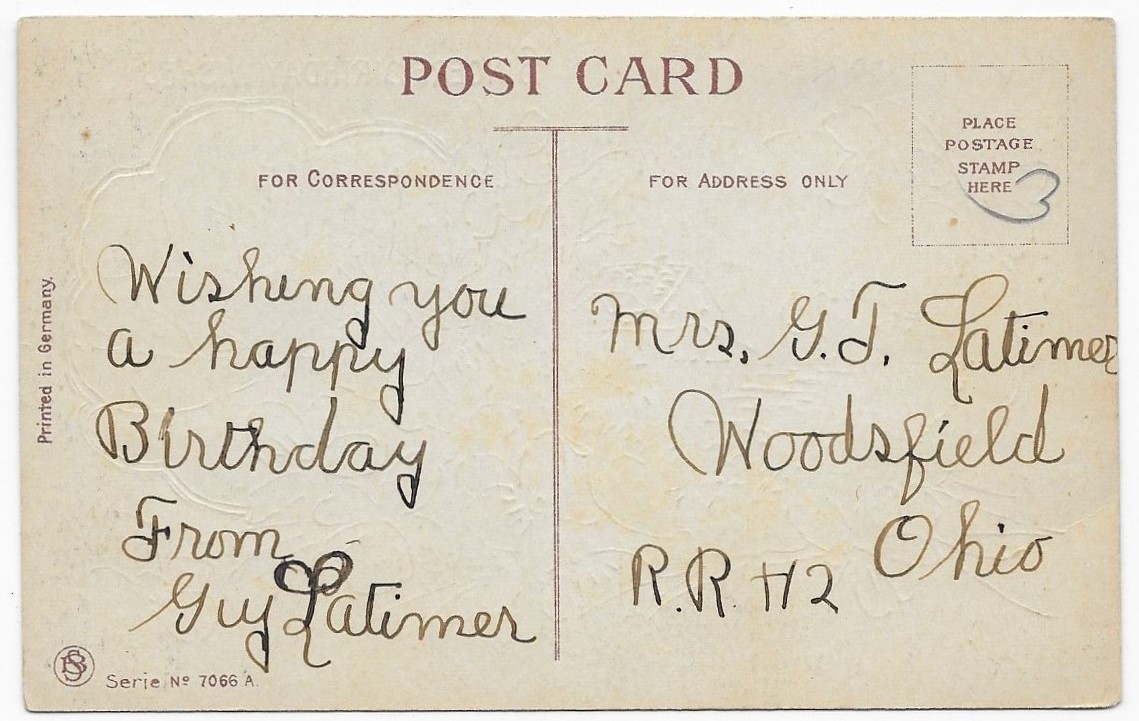 POST CARD
PLACE
POSTAGE
STAMP
HERE
3
FOR CORRESPONDENCE
FOR ADDRESS ONLY
Wishing you
a happy
Birthday
From
Guy Latimer
Mrs. G.T. Latimer
Woodsfield
Ohio
R.R. #2
Printed in Germany.
Serie No 7066 A.